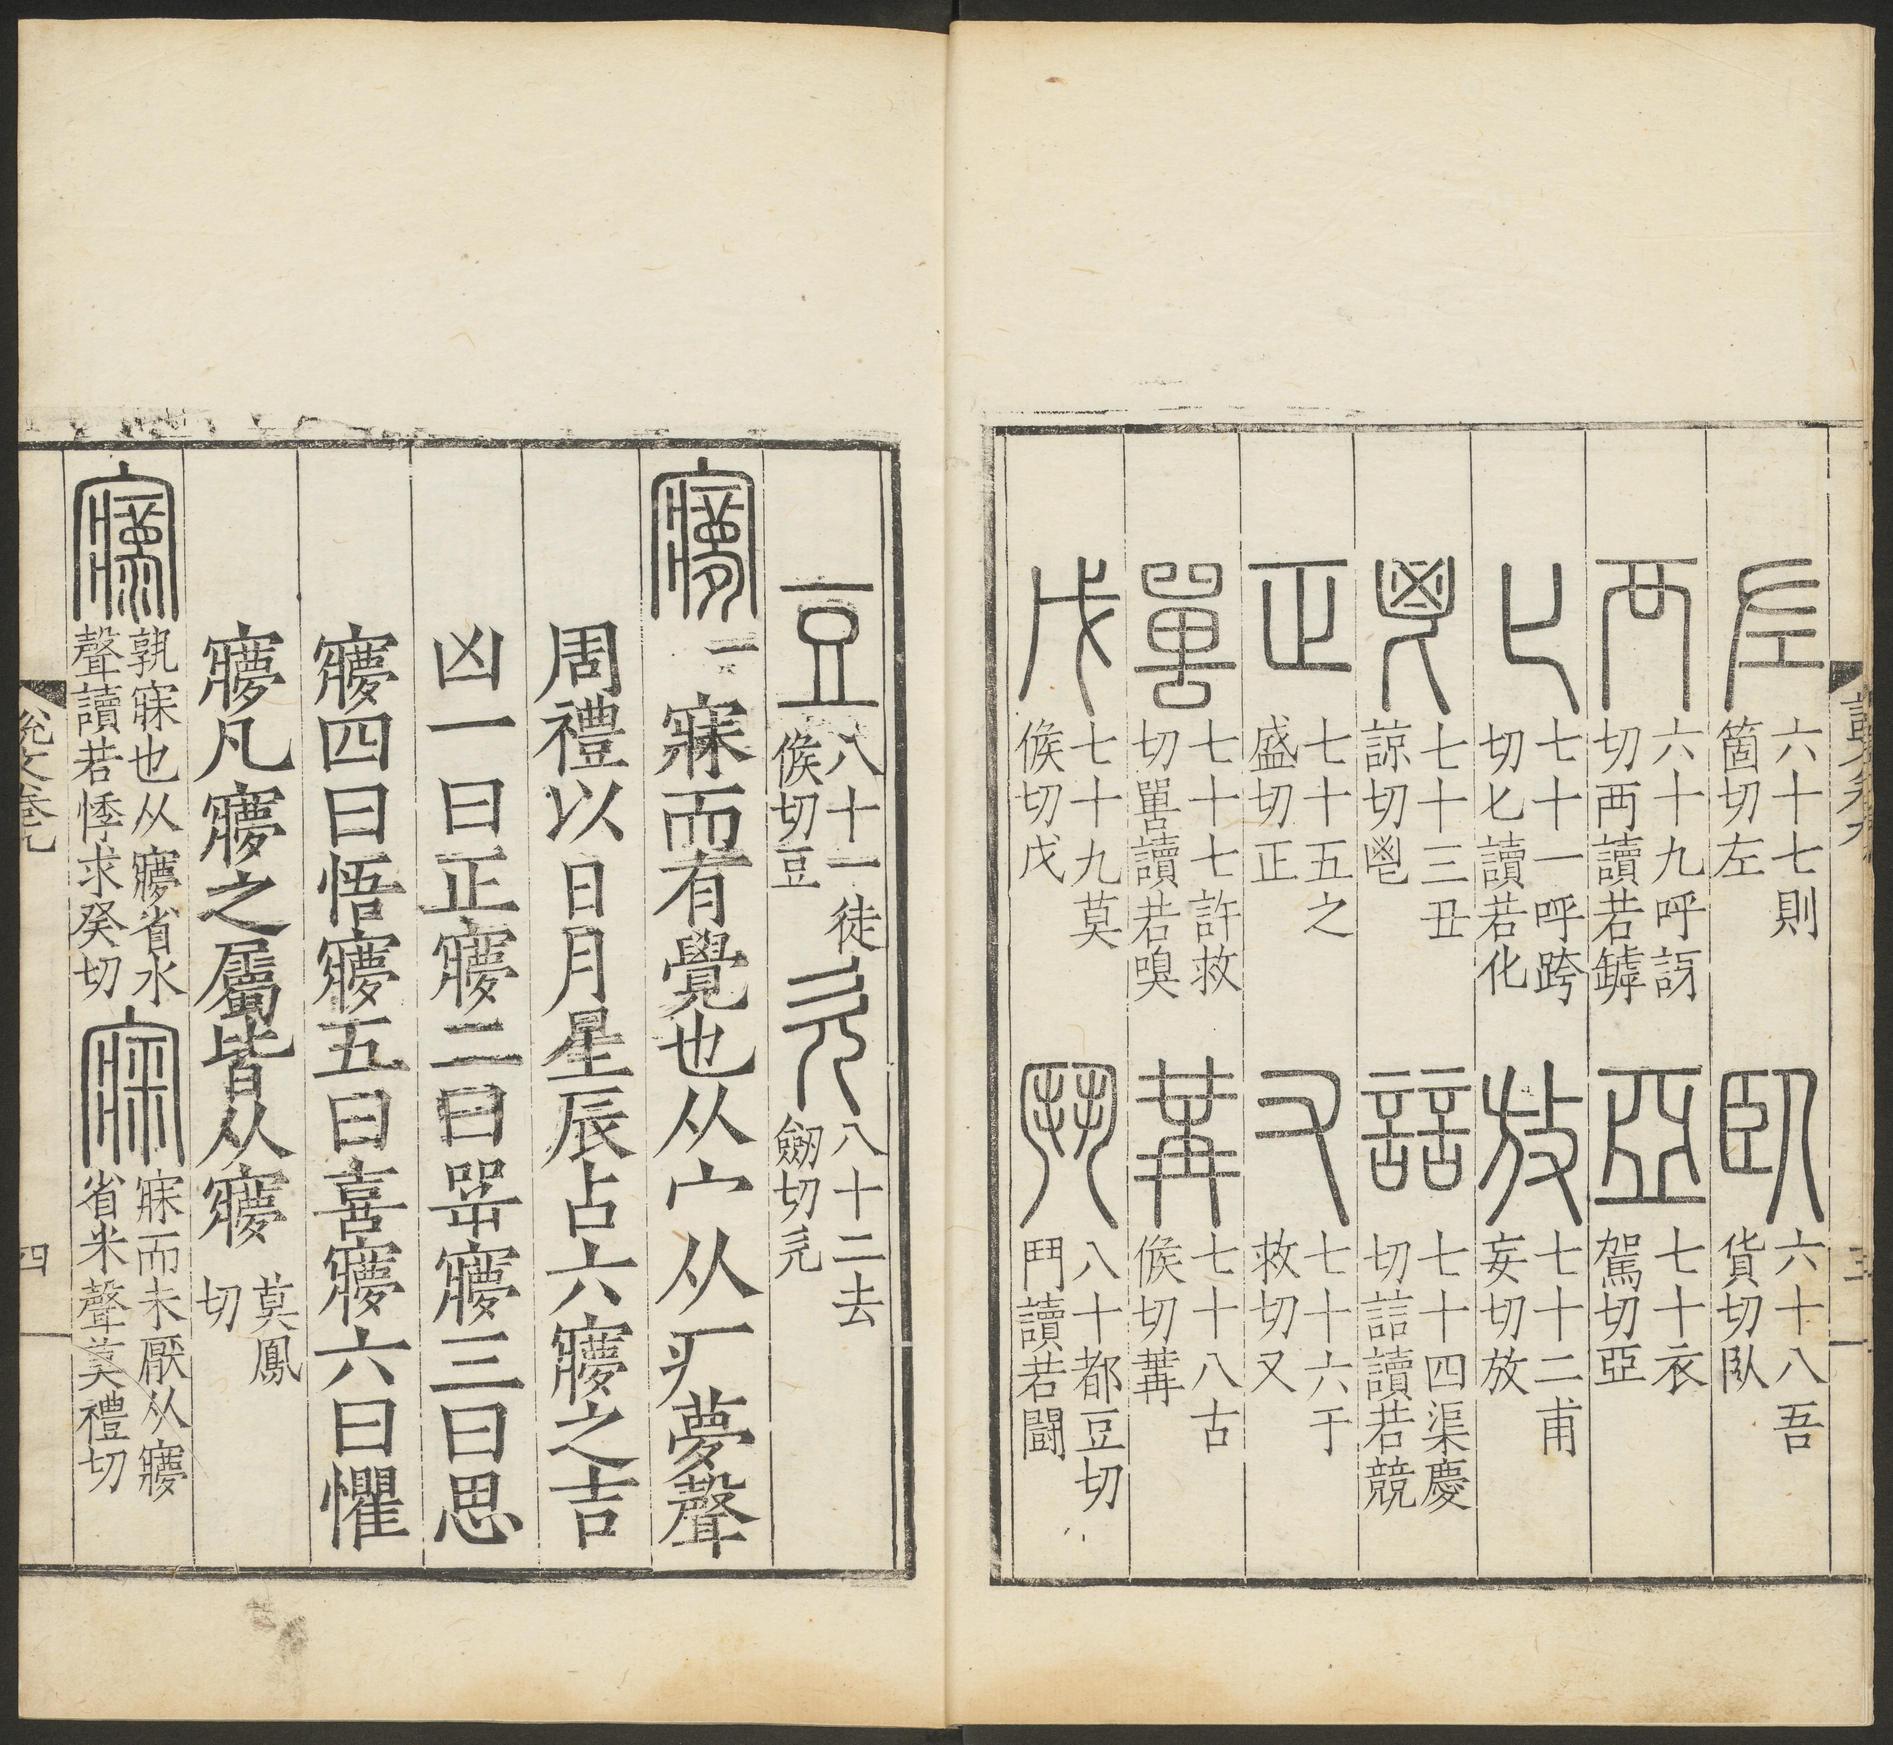 左 六十七則箇切左
臥 六十八吾貨切臥
襾 六十九呼訝切襾讀若罅
亞 七十衣駕切亞
𠤎 七十一呼跨切𠤎讀若化
放 七十二甫妄切放
鬯 七十三丑諒切鬯
誩 七十四渠慶切誩讀若競
正 七十五之盛切正
又 七十六于救切又
嘼 七十七許救切嘼讀若嗅
冓 七十八古候切冓
戊 七十九莫候切戊
鬥 八十都豆切鬥讀若鬭
豆 八十一徒候切豆
㒫 八十二去劒切㒫
㝱 一 寐而有覺也从宀从疒夢聲
周禮以日月星辰占六㝱之吉
凶一曰正㝱二曰咢㝱三曰思
㝱四曰悟㝱五曰喜㝱六曰懼
㝱凡㝱之屬皆从㝱 莫鳳切
孰寐也从㝱省水聲讀若悸求癸切
寐而未厭从㝱省米聲莫禮切
說文卷九
四